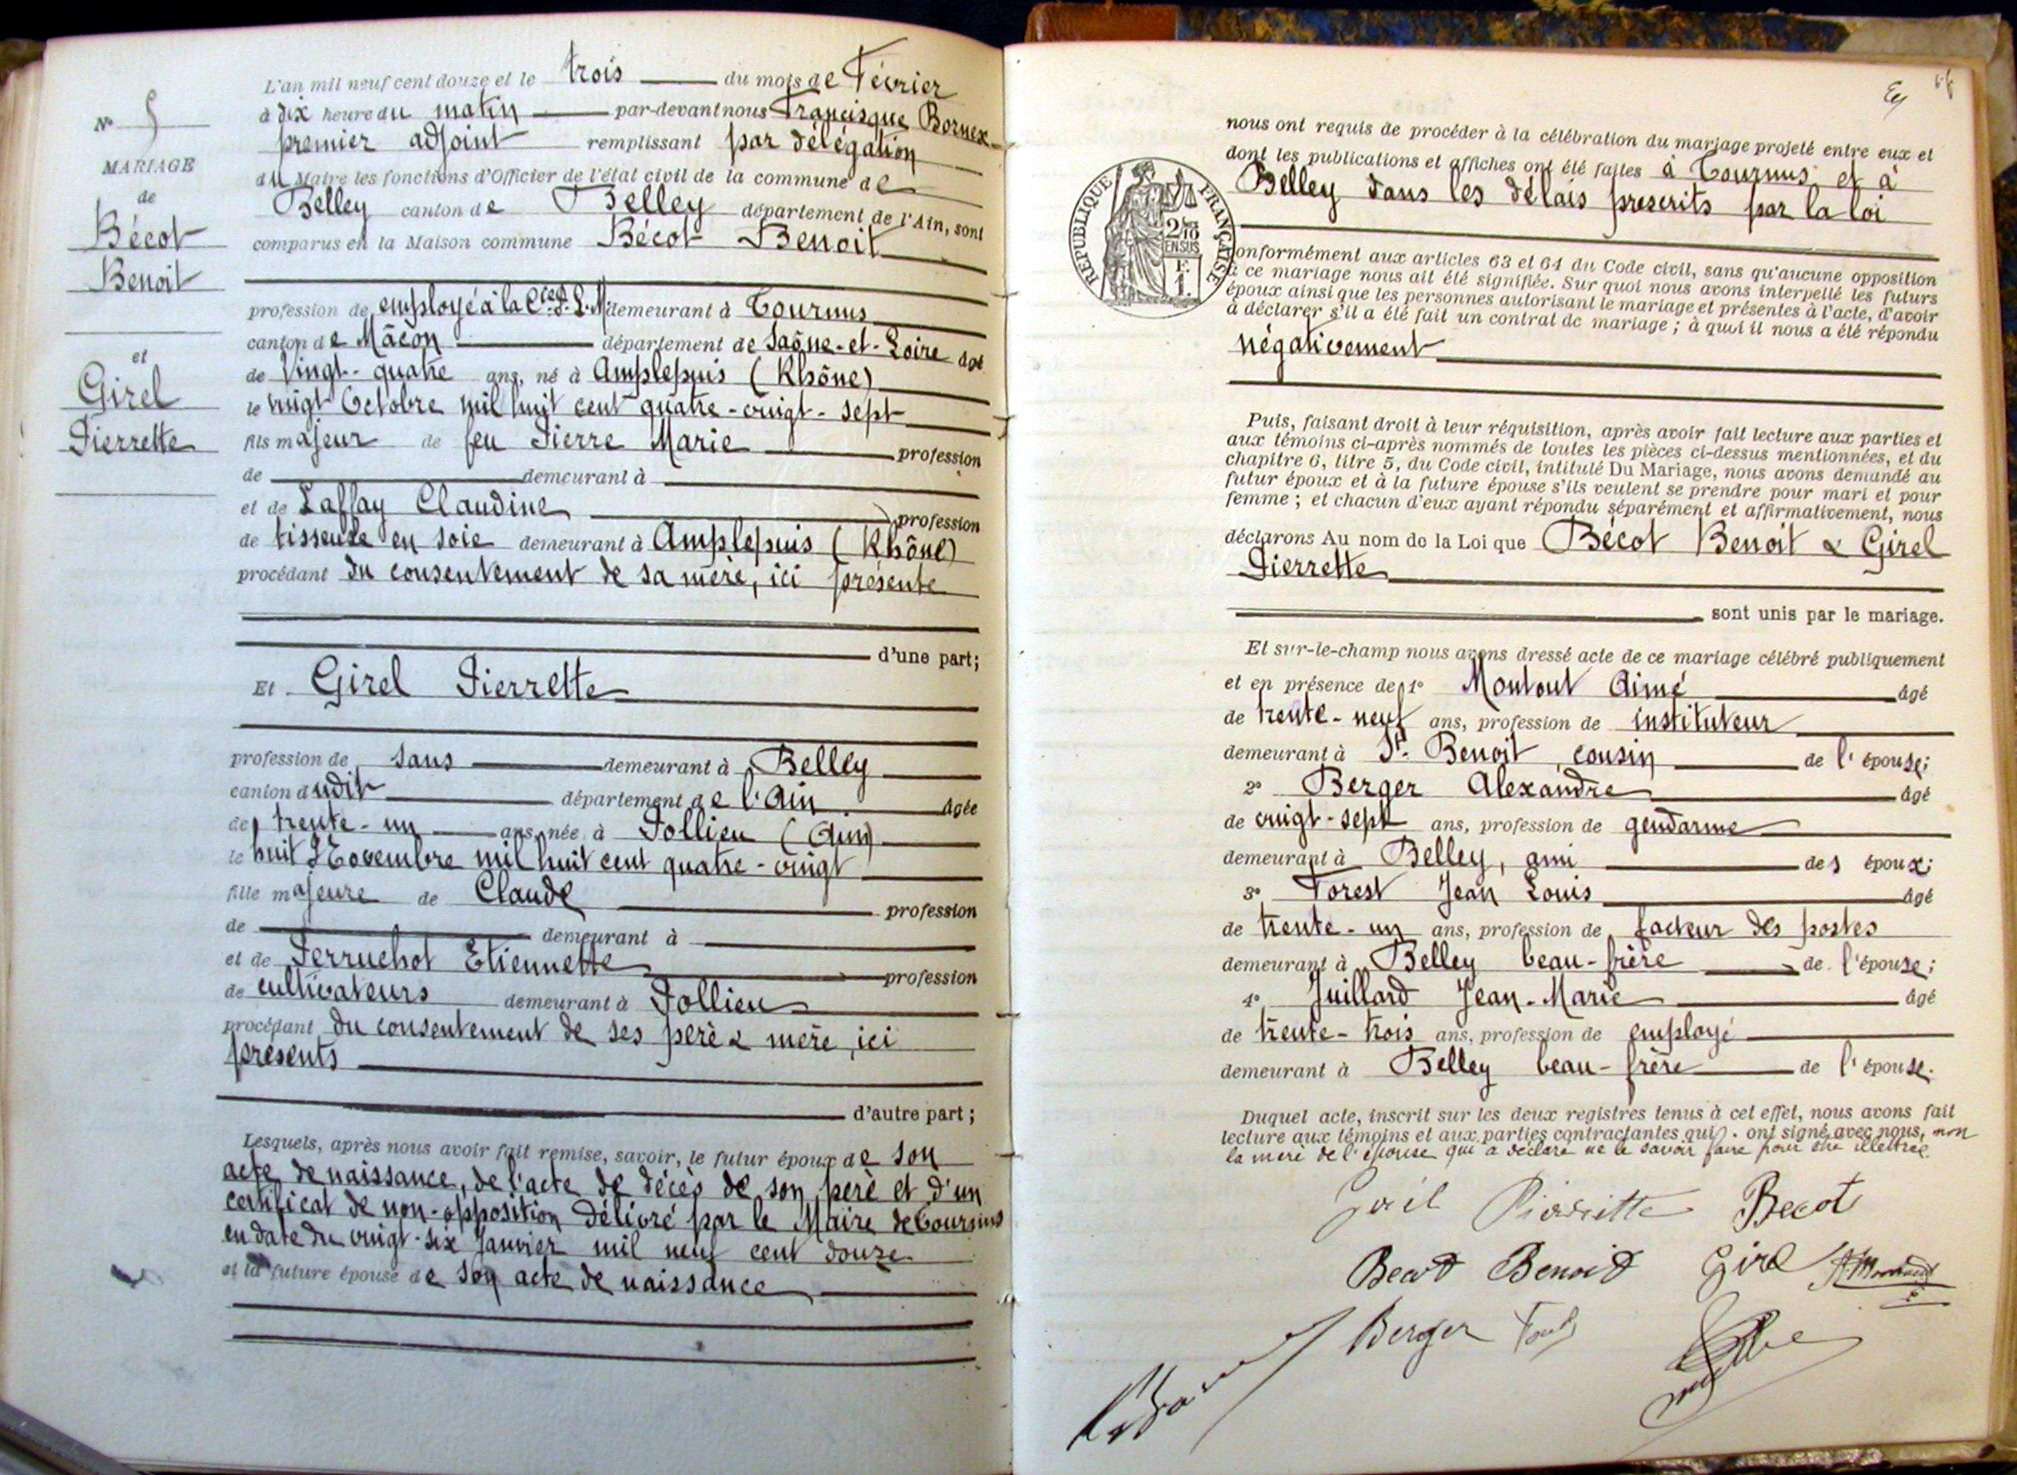 L'an mil neuf cent douze et le trois du mois de Février
à dix heure du matin par-devant nous Francisque Bornex
premier adjoint remplissant par délégation
du Maire les fonctions d'Officier de l'état civil de la commune de
Belley canton de Belley département de l'Ain, sont
comparus en la Maison commune Bécot Benoit
profession de employé à la Cie P. L. M. demeurant à Tournus
canton de Mâcon département de Saône-et-Loire âgé
de Vingt-quatre ans, né à Amplepuis (Rhône)
le vingt Octobre mil huit cent quatre-vingt-sept
fils majeur de feu Pierre Marie profession
de demeurant à
et de Laffay Claudine profession
de tisseuse en soie demeurant à Amplepuis (Rhône)
procédant du consentement de sa mère, ici présente
d'une part;
Et Girel Pierrette
profession de sans demeurant à Belley
canton dudit département de l'Ain âgée
de trente-un ans, née à Pollieu (Ain)
le huit Novembre mil huit cent quatre-vingt
fille majeure de Claude profession
de demeurant à
et de Perruchot Etiennette profession
de cultivateurs demeurant à Pollieu
procédant du consentement de ses père & mère, ici
présents
d'autre part;
Lesquels, après nous avoir fait remise, savoir, le futur époux de son
acte de naissance, de l'acte de décès de son père et d'un
certificat de non-opposition délivré par le Maire de Tournus
en date du vingt-six Janvier mil neuf cent douze
et la future épouse de son acte de naissance
N° 5
MARIAGE
de
Bécot
Benoit
et
Girel
Pierrette
nous ont requis de procéder à la célébration du mariage projeté entre eux et
dont les publications et affiches ont été faites à Tournus et à
Belley dans les délais prescrits par la loi
RÉPUBLIQUE FRANÇAISE
2/10
EN SUS
F.
1
conformément aux articles 63 et 64 du Code civil, sans qu'aucune opposition
à ce mariage nous ait été signifiée. Sur quoi nous avons interpellé les futurs
époux ainsi que les personnes autorisant le mariage et présentes à l'acte, d'avoir
à déclarer s'il a été fait un contrat de mariage; à quoi il nous a été répondu
négativement
Puis, faisant droit à leur réquisition, après avoir fait lecture aux parties et
aux témoins ci-après nommés de toutes les pièces ci-dessus mentionnées, et du
chapitre 6, titre 5, du Code civil, intitulé Du Mariage, nous avons demandé au
futur époux et à la future épouse s'ils veulent se prendre pour mari et pour
femme; et chacun d'eux ayant répondu séparément et affirmativement, nous
déclarons Au nom de la Loi que Bécot Benoit & Girel
Pierrette
sont unis par le mariage.
Et sur-le-champ nous avons dressé acte de ce mariage célébré publiquement
et en présence de 1° Montout Aimé âgé
de trente-neuf ans, profession de instituteur
demeurant à St-Benoit, cousin de l'épouse;
2° Berger Alexandre âgé
de vingt-sept ans, profession de gendarme
demeurant à Belley, ami des époux;
3° Forest Jean Louis âgé
de trente-un ans, profession de facteur des postes
demeurant à Belley beau-frère de l'épouse;
4° Juillard Jean-Marie âgé
de trente-trois ans, profession de employé
demeurant à Belley beau-frère de l'épouse.
Duquel acte, inscrit sur les deux registres tenus à cet effet, nous avons fait
lecture aux témoins et aux parties contractantes qui ont signé avec nous, non
la mère de l'épouse qui a déclaré ne le savoir faire pour être illettrée.
Girel Pierrette Becot
Becot Benoit Girel
Berger